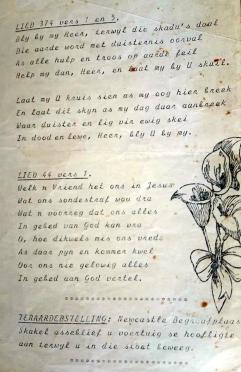 LIED 374 vers 1 en 5.
Bly by my Heer, terwyl die skadu's daal
Die aarde word met duisternis oorval
As alle hulp en troos op aarde feil
Help my dan, Heer, en laat my by U skuil.
Laat my U kruis sien as my oog hier breek
En laat dit skyn as my dag daar aanbreek
Waar duister en lig vir ewig skei
In dood en lewe, Heer, bly U by my.
LIED 44 vers 1.
Welk 'n Vriend het ons in Jesus
Wat ons sondestraf wou dra
Wat 'n voorreg dat ons alles
In gebed van God kan vra
O, hoe dikwels mis ons vrede
As daar pyn en kommer kwel
Oor ons nie gelowig alles
In gebed aan God vertel.
TERAARDEBESTELLING: Newcastle Begraafplaas
Skakel asseblief u voertuig se hoofligte
aan terwyl u in die stoet beweeg.